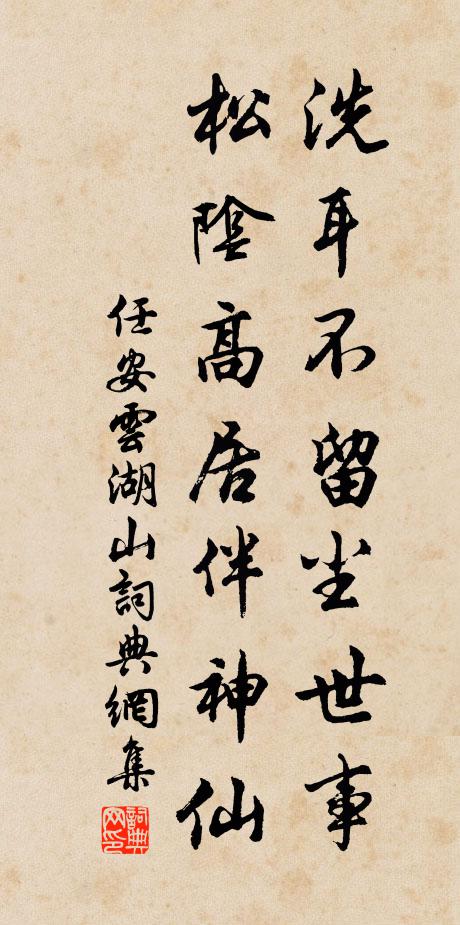 洗耳不留尘世事
松陰高居伴神仙
任安雲湖山詞典網集
詞典网印